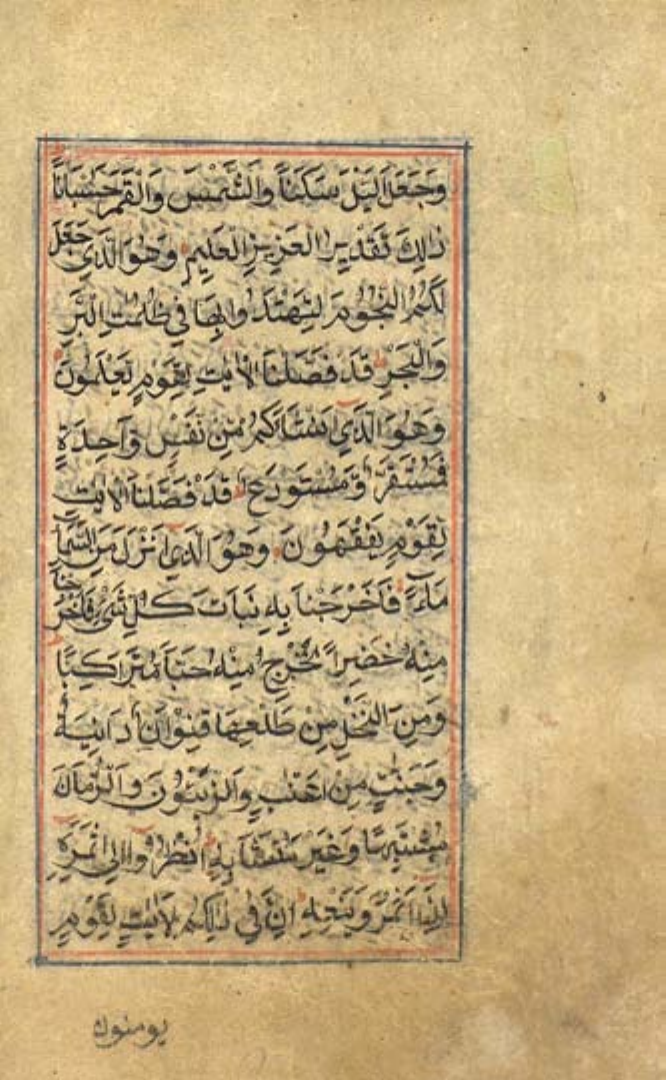 وَجَعَلَ الَّيْلَ سَكَنًا وَالشَّمْسَ وَالْقَمَرَ حُسْبَانًا
ذٰلِكَ تَقْدِيرُ الْعَزِيزِ الْعَلِيمِ وَهُوَ الَّذِي جَعَلَ
لَكُمُ النُّجُومَ لِتَهْتَدُوا بِهَا فِي ظُلُمٰتِ الْبَرِّ
وَالْبَحْرِ قَدْ فَصَّلْنَا الْاٰيٰتِ لِقَوْمٍ يَعْلَمُونَ
وَهُوَ الَّذِي اَنْشَاَكُمْ مِنْ نَفْسٍ وَاحِدَةٍ
فَمُسْتَقَرٌّ وَمُسْتَوْدَعٌ قَدْ فَصَّلْنَا الْاٰيٰتِ
لِقَوْمٍ يَفْقَهُونَ وَهُوَ الَّذِي اَنْزَلَ مِنَ السَّمَاۤءِ
مَاۤءً فَاَخْرَجْنَا بِهِ نَبَاتَ كُلِّ شَيْءٍ فَاَخْرَجْنَا
مِنْهُ خَضِرًا نُخْرِجُ مِنْهُ حَبًّا مُتَرَاكِبًا
وَمِنَ النَّخْلِ مِنْ طَلْعِهَا قِنْوَانٌ دَانِيَةٌ
وَجَنّٰتٍ مِنْ اَعْنَابٍ وَالزَّيْتُونَ وَالرُّمَّانَ
مُشْتَبِهًا وَغَيْرَ مُتَشَابِهٍ اُنْظُرُوا اِلٰى ثَمَرِهِ
اِذَا اَثْمَرَ وَيَنْعِهِ اِنَّ فِي ذٰلِكُمْ لَاٰيٰتٍ لِقَوْمٍ
يومنون